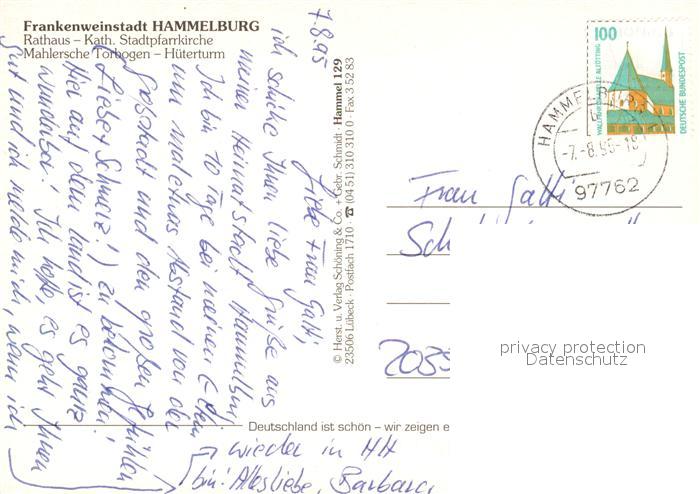 Frankenweinstadt HAMMELBURG
Rathaus – Kath. Stadtpfarrkirche
Mahlersche Torbogen – Hüterturm
7.8.95
Liebe Frau Gatti,
ich schicke Ihnen liebe Grüße aus
meiner Heimatstadt Hammelburg
Ich bin 10 Tage bei meinen Eltern
um mal etwas Abstand von der
Großstadt und den großen Gefühlen
(Liebe + Schmerz!) zu bekommen!
Hier auf dem Land ist es ganz
wunderbar! Ich hoffe, es geht Ihnen
gut und ich melde mich, wenn ich
wieder in HH
bin! Alles liebe, Barbara
© Herst. u. Verlag Schöning & Co. + Gebr. Schmidt · Hammel 129
23506 Lübeck · Postfach 1710 · ☎ (04 51) 310 310 · Fax 3 52 83
Deutschland ist schön – wir zeigen e
100
WALLFAHRTSKAPELLE ALTÖTTING
DEUTSCHE BUNDESPOST
HAMMELBURG
-7.-8.95-18
97762
Frau Gatti
Sch
privacy protection
Datenschutz